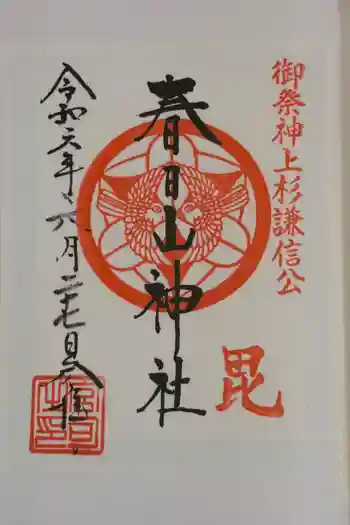 御祭神上杉謙信公
毘
春日山神社
令和六年六月二七日